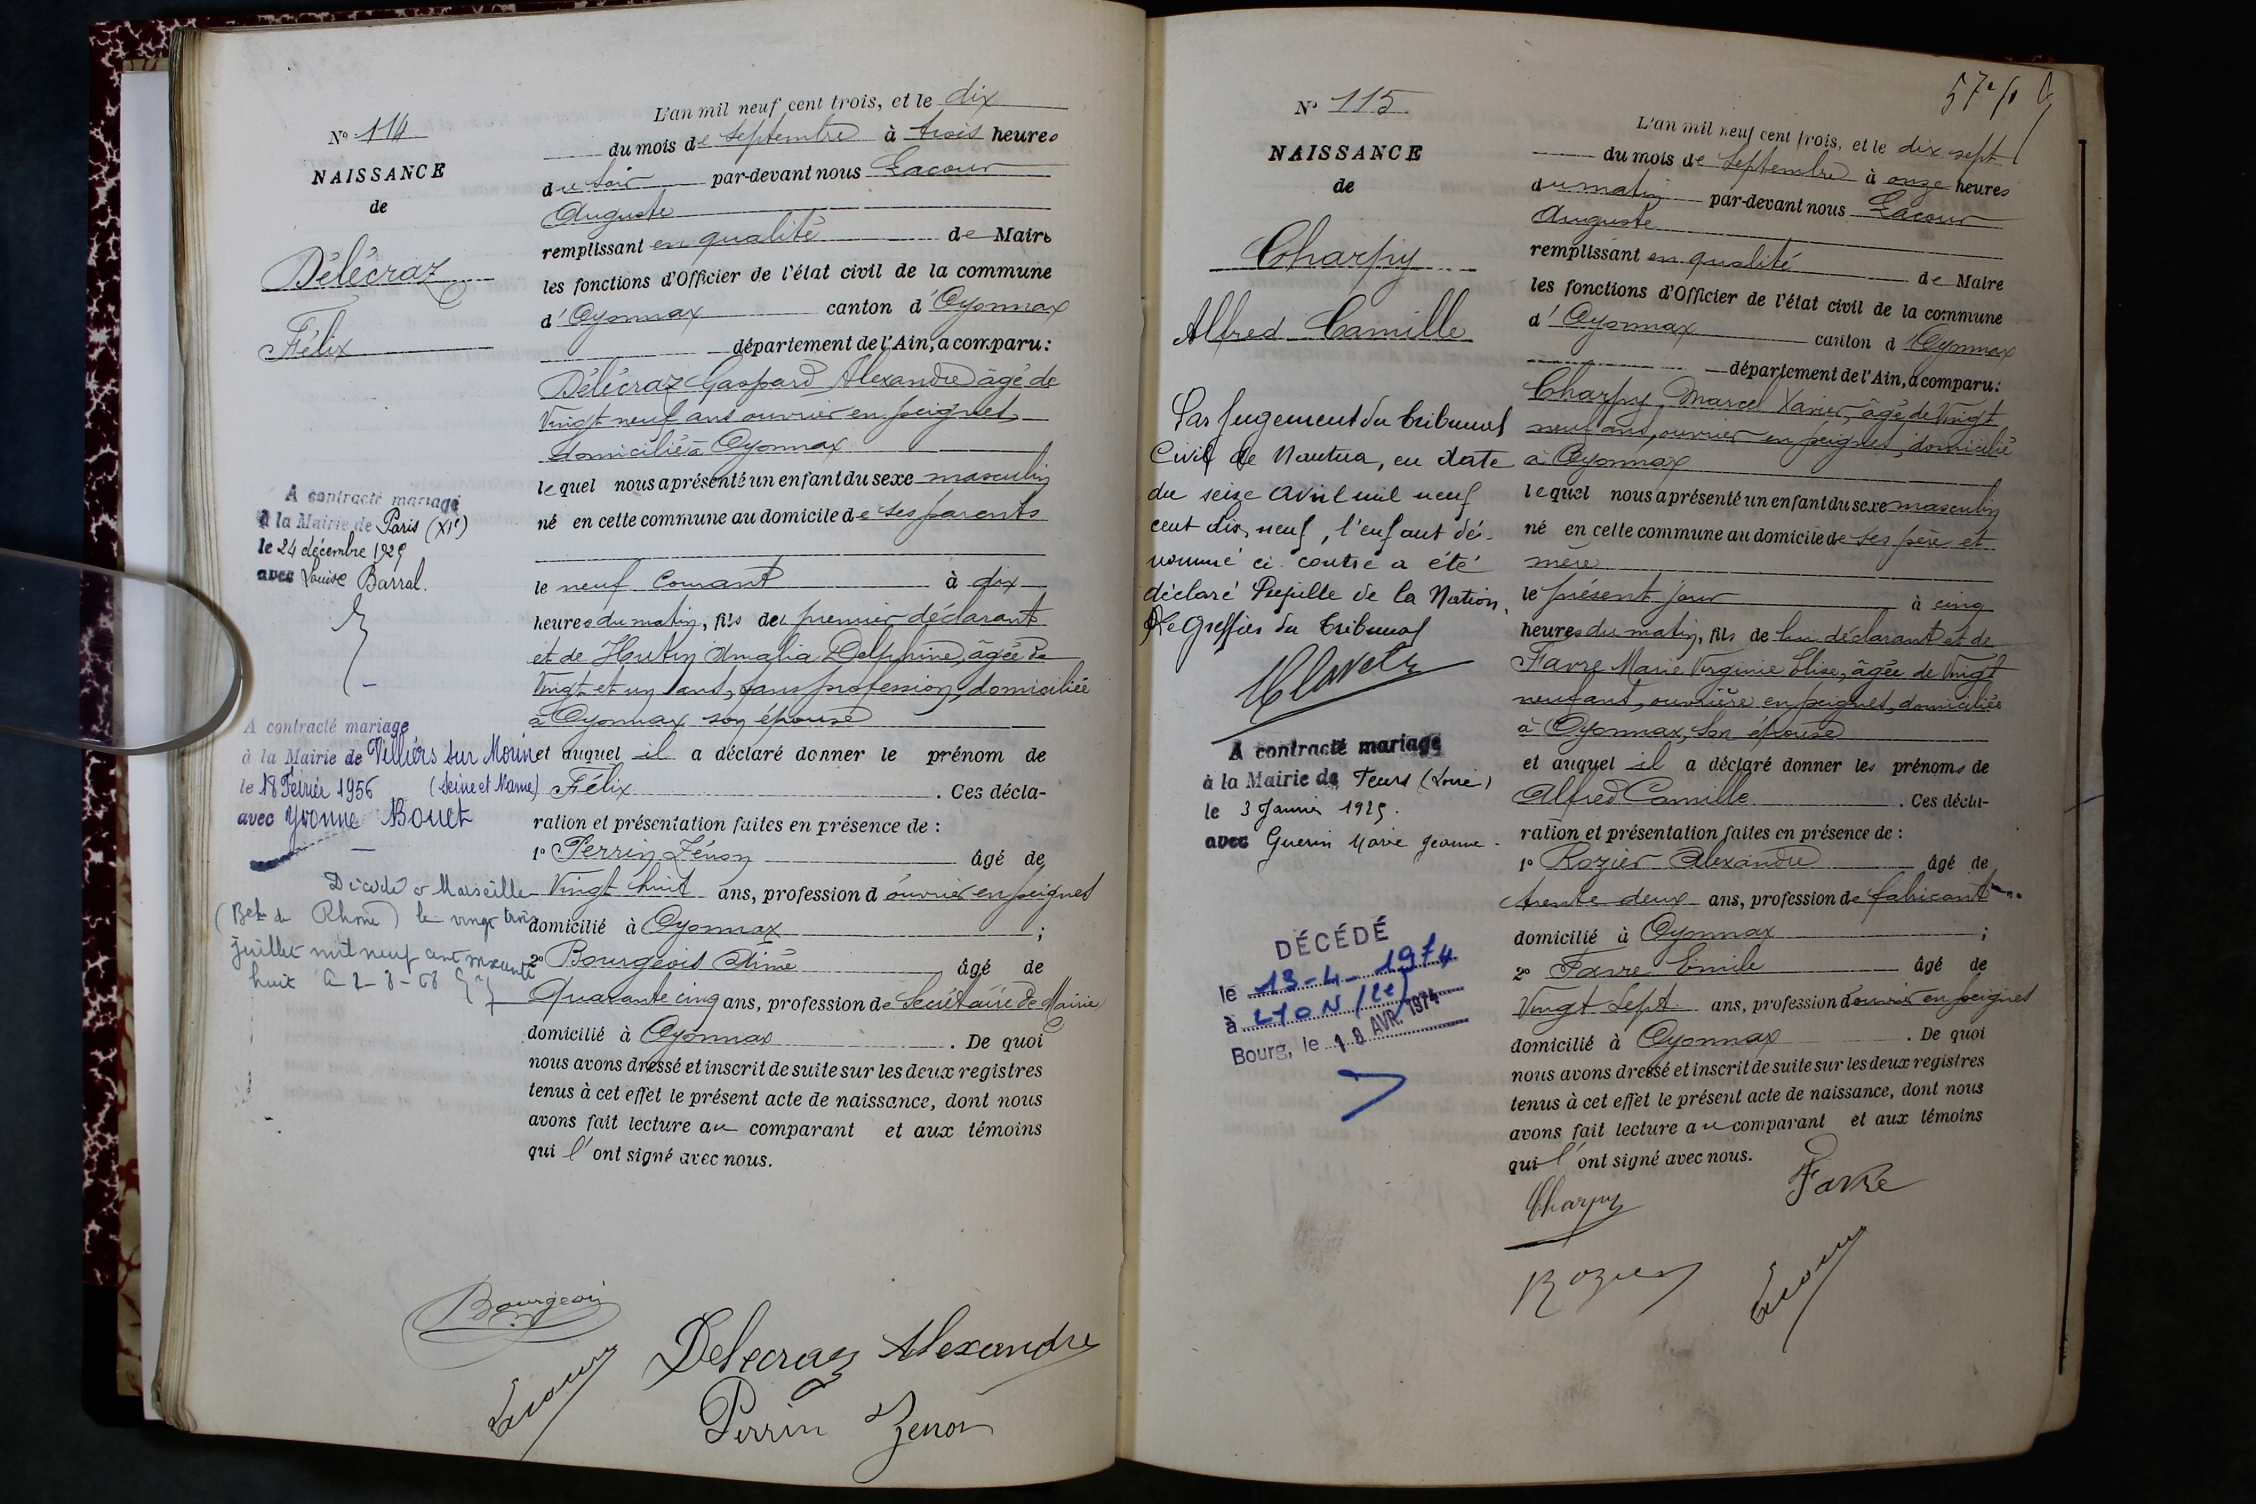 N° 114
NAISSANCE
de
Délécraz
Félix
A contracté mariage
à la Mairie de Paris (XIe)
le 24 décembre 1929
avec Louise Barral.
A contracté mariage
à la Mairie de Villiers sur Morin
le 18 Février 1956 (Seine et Marne)
avec Yvonne Bouet
Décédé à Marseille
(Bches du Rhône) le vingt trois
juillet mil neuf cent soixante
huit à 2-8-68
L'an mil neuf cent trois, et le dix
du mois de Septembre à trois heures
du soir par-devant nous Lacour
Auguste
remplissant en qualité de Maire
les fonctions d'Officier de l'état civil de la commune
d'Oyonnax canton d'Oyonnax
département de l'Ain, a comparu:
Délécraz Gaspard Alexandre âgé de
Vingt neuf ans ouvrier en peignes
domicilié à Oyonnax
lequel nous a présenté un enfant du sexe masculin
né en cette commune au domicile de ses parents
le neuf courant à dix
heures du matin, fils de premier déclarant
et de Hutin Amalia Delphine, âgée de
Vingt et un ans, sans profession, domiciliée
à Oyonnax son épouse
et auquel il a déclaré donner le prénom de
Félix . Ces décla-
ration et présentation faites en présence de :
1° Perrin Zénon âgé de
Vingt huit ans, profession d'ouvrier en peignes
domicilié à Oyonnax ;
2° Bourgeois Aimé âgé de
Quarante cinq ans, profession de Secrétaire de Mairie
domicilié à Oyonnax . De quoi
nous avons dressé et inscrit de suite sur les deux registres
tenus à cet effet le présent acte de naissance, dont nous
avons fait lecture au comparant et aux témoins
qui l'ont signé avec nous.
Bourgeois
Lacour
Delecraz Alexandre
Perrin Zenon
57e f°
N° 115
NAISSANCE
de
Charpy
Alfred Camille
Par jugement du tribunal
Civil de Nantua, en date
du seize avril mil neuf
cent dix neuf, l'enfant dé-
nommé ci-contre a été
déclaré Pupille de la Nation.
Le Greffier du tribunal
A contracté mariage
à la Mairie de Feurs (Loire)
le 3 Janvier 1925.
avec Guerin Marie Jeanne.
DÉCÉDÉ
le 13-4-1974
à LYON (2e)
Bourg, le 18 AVR. 1974
L'an mil neuf cent trois, et le dix sept
du mois de Septembre à onze heures
du matin par-devant nous Lacour
Auguste
remplissant en qualité de Maire
les fonctions d'Officier de l'état civil de la commune
d'Oyonnax canton d'Oyonnax
département de l'Ain, a comparu:
Charpy Marcel Xavier, âgé de Vingt
neuf ans, ouvrier en peignes, domicilié
à Oyonnax
lequel nous a présenté un enfant du sexe masculin
né en cette commune au domicile de ses père et
mère
le présent jour à cinq
heures du matin, fils de lui déclarant et de
Favre Marie Virginie Elise, âgée de Vingt
neuf ans, ouvrière en peignes, domiciliée
à Oyonnax, son épouse
et auquel il a déclaré donner les prénoms de
Alfred Camille . Ces décla-
ration et présentation faites en présence de :
1° Rozier Alexandre âgé de
trente deux ans, profession de fabricant
domicilié à Oyonnax ;
2° Favre Emile âgé de
Vingt Sept ans, profession d'ouvrier en peignes
domicilié à Oyonnax . De quoi
nous avons dressé et inscrit de suite sur les deux registres
tenus à cet effet le présent acte de naissance, dont nous
avons fait lecture au comparant et aux témoins
qui l'ont signé avec nous.
Charpy
Favre
Rozier
Lacour